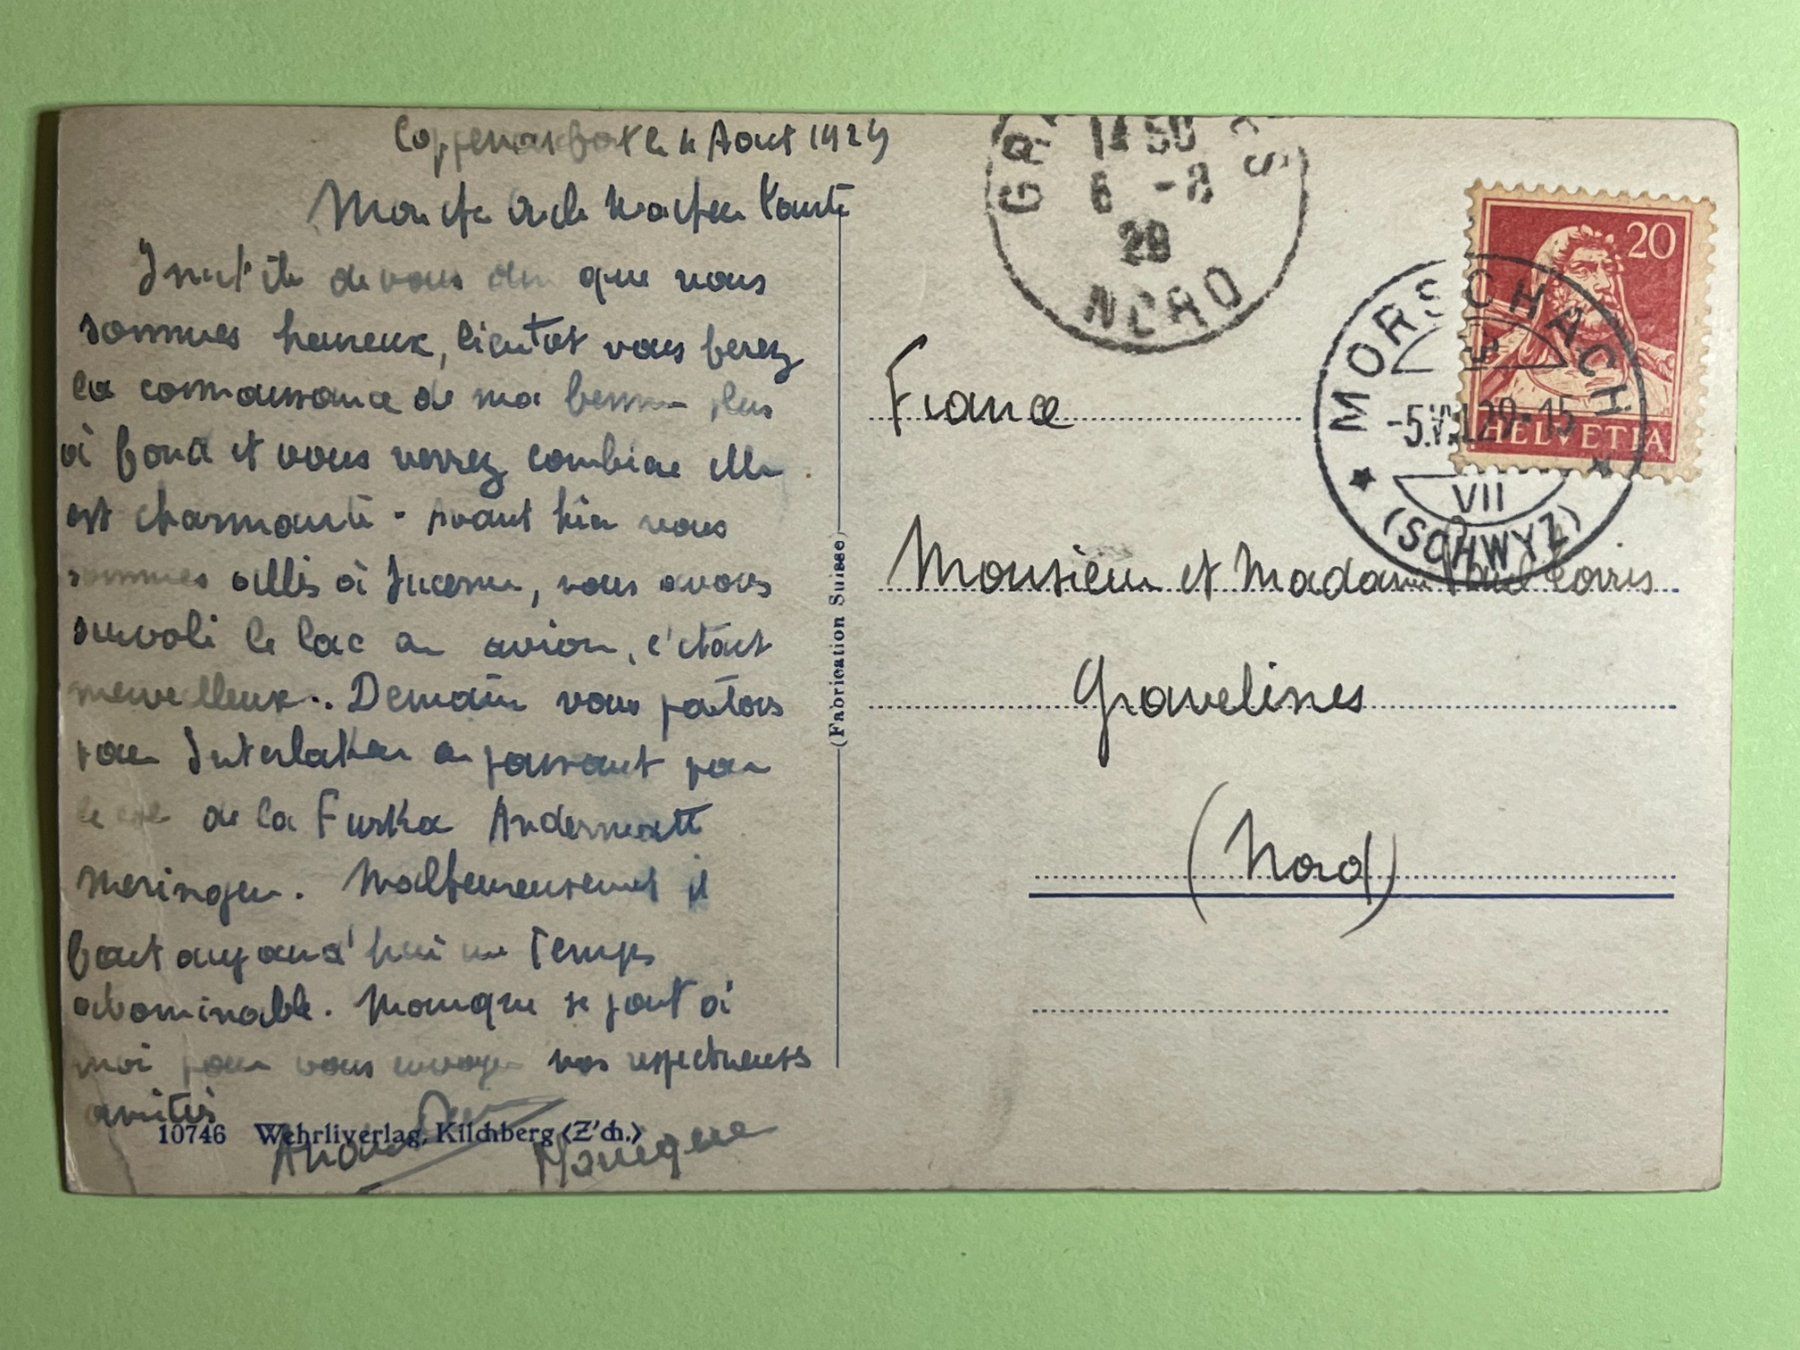 le 4 Aout 1929
Mon cher Oncle Ma chere Tante
Inutile de vous dire que nous
sommes heureux, bientot vous ferez
la connaissance de ma femme plus
à fond et vous verrez combien elle
est charmante - Avant hier nous
sommes allés à Lucerne, nous avons
survolé le lac en avion, c'etait
merveilleux.. Demain nous partons
pour Interlaken en passant par
le col de la Furka Andermatt
Meringen. Malheureusement il
fait aujourd'hui un temps
abominable. Monique se joint à
moi pour vous envoyer nos respectueuses
amitiés
10746 Wehrliverlag, Kilchberg (Z'ch.)
Monique
(Fabrication Suisse)
14 30
6 -8
29
NORD
20
HELVETIA
MORSCHACH
-5.VIII.29-15
VII
(SCHWYZ)
France
Monsieur et Madame Paul
Gravelines
(Nord)